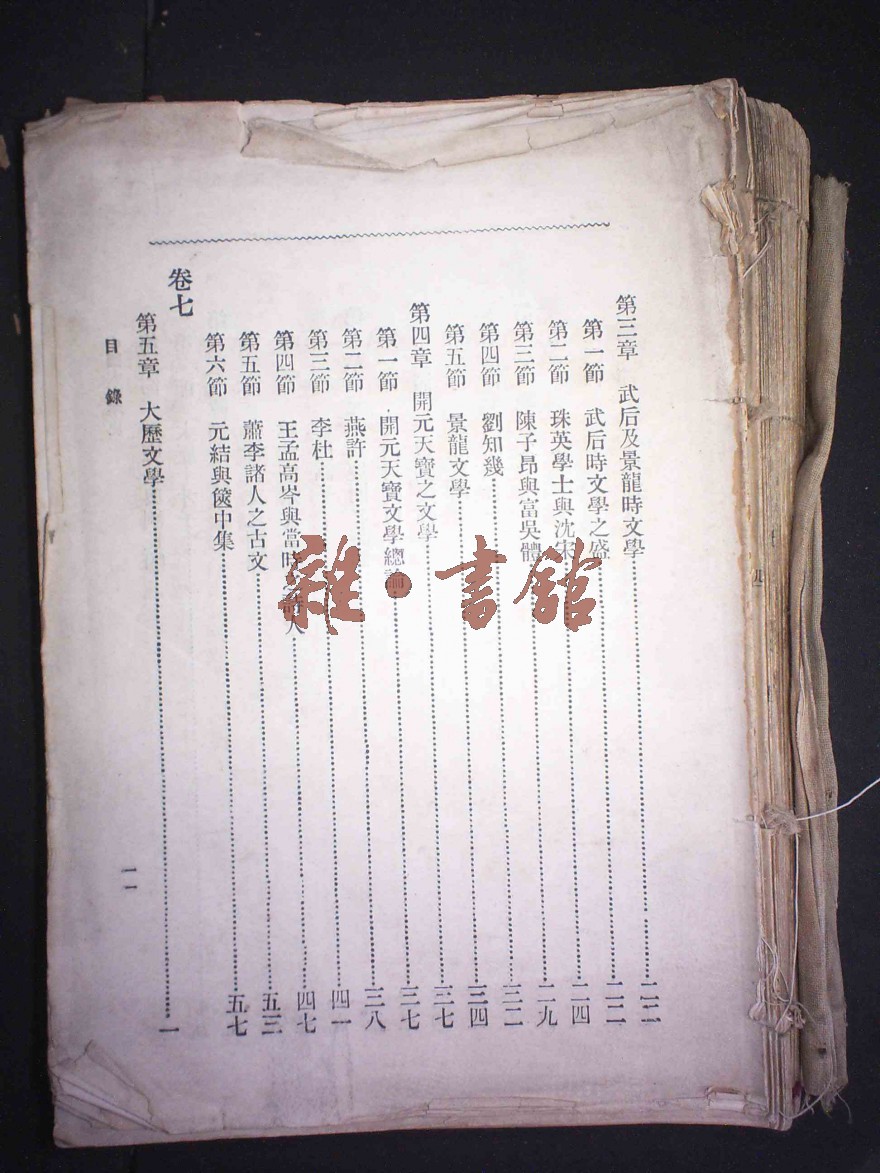 第三章 武后及景龍時文學……二二
第一節 武后時文學之盛……二二
第二節 珠英學士與沈宋……二四
第三節 陳子昂與富吳體……二九
第四節 劉知幾……三二
第五節 景龍文學……三四
第四章 開元天寶之文學……三七
第一節 開元天寶文學總論……三七
第二節 燕許……三八
第三節 李杜……四一
第四節 王孟高岑與當時之詩人……四七
第五節 蕭李諸人之古文……五三
第六節 元結與篋中集……五七
卷七
第五章 大歷文學……一
目錄 二
雜·書館